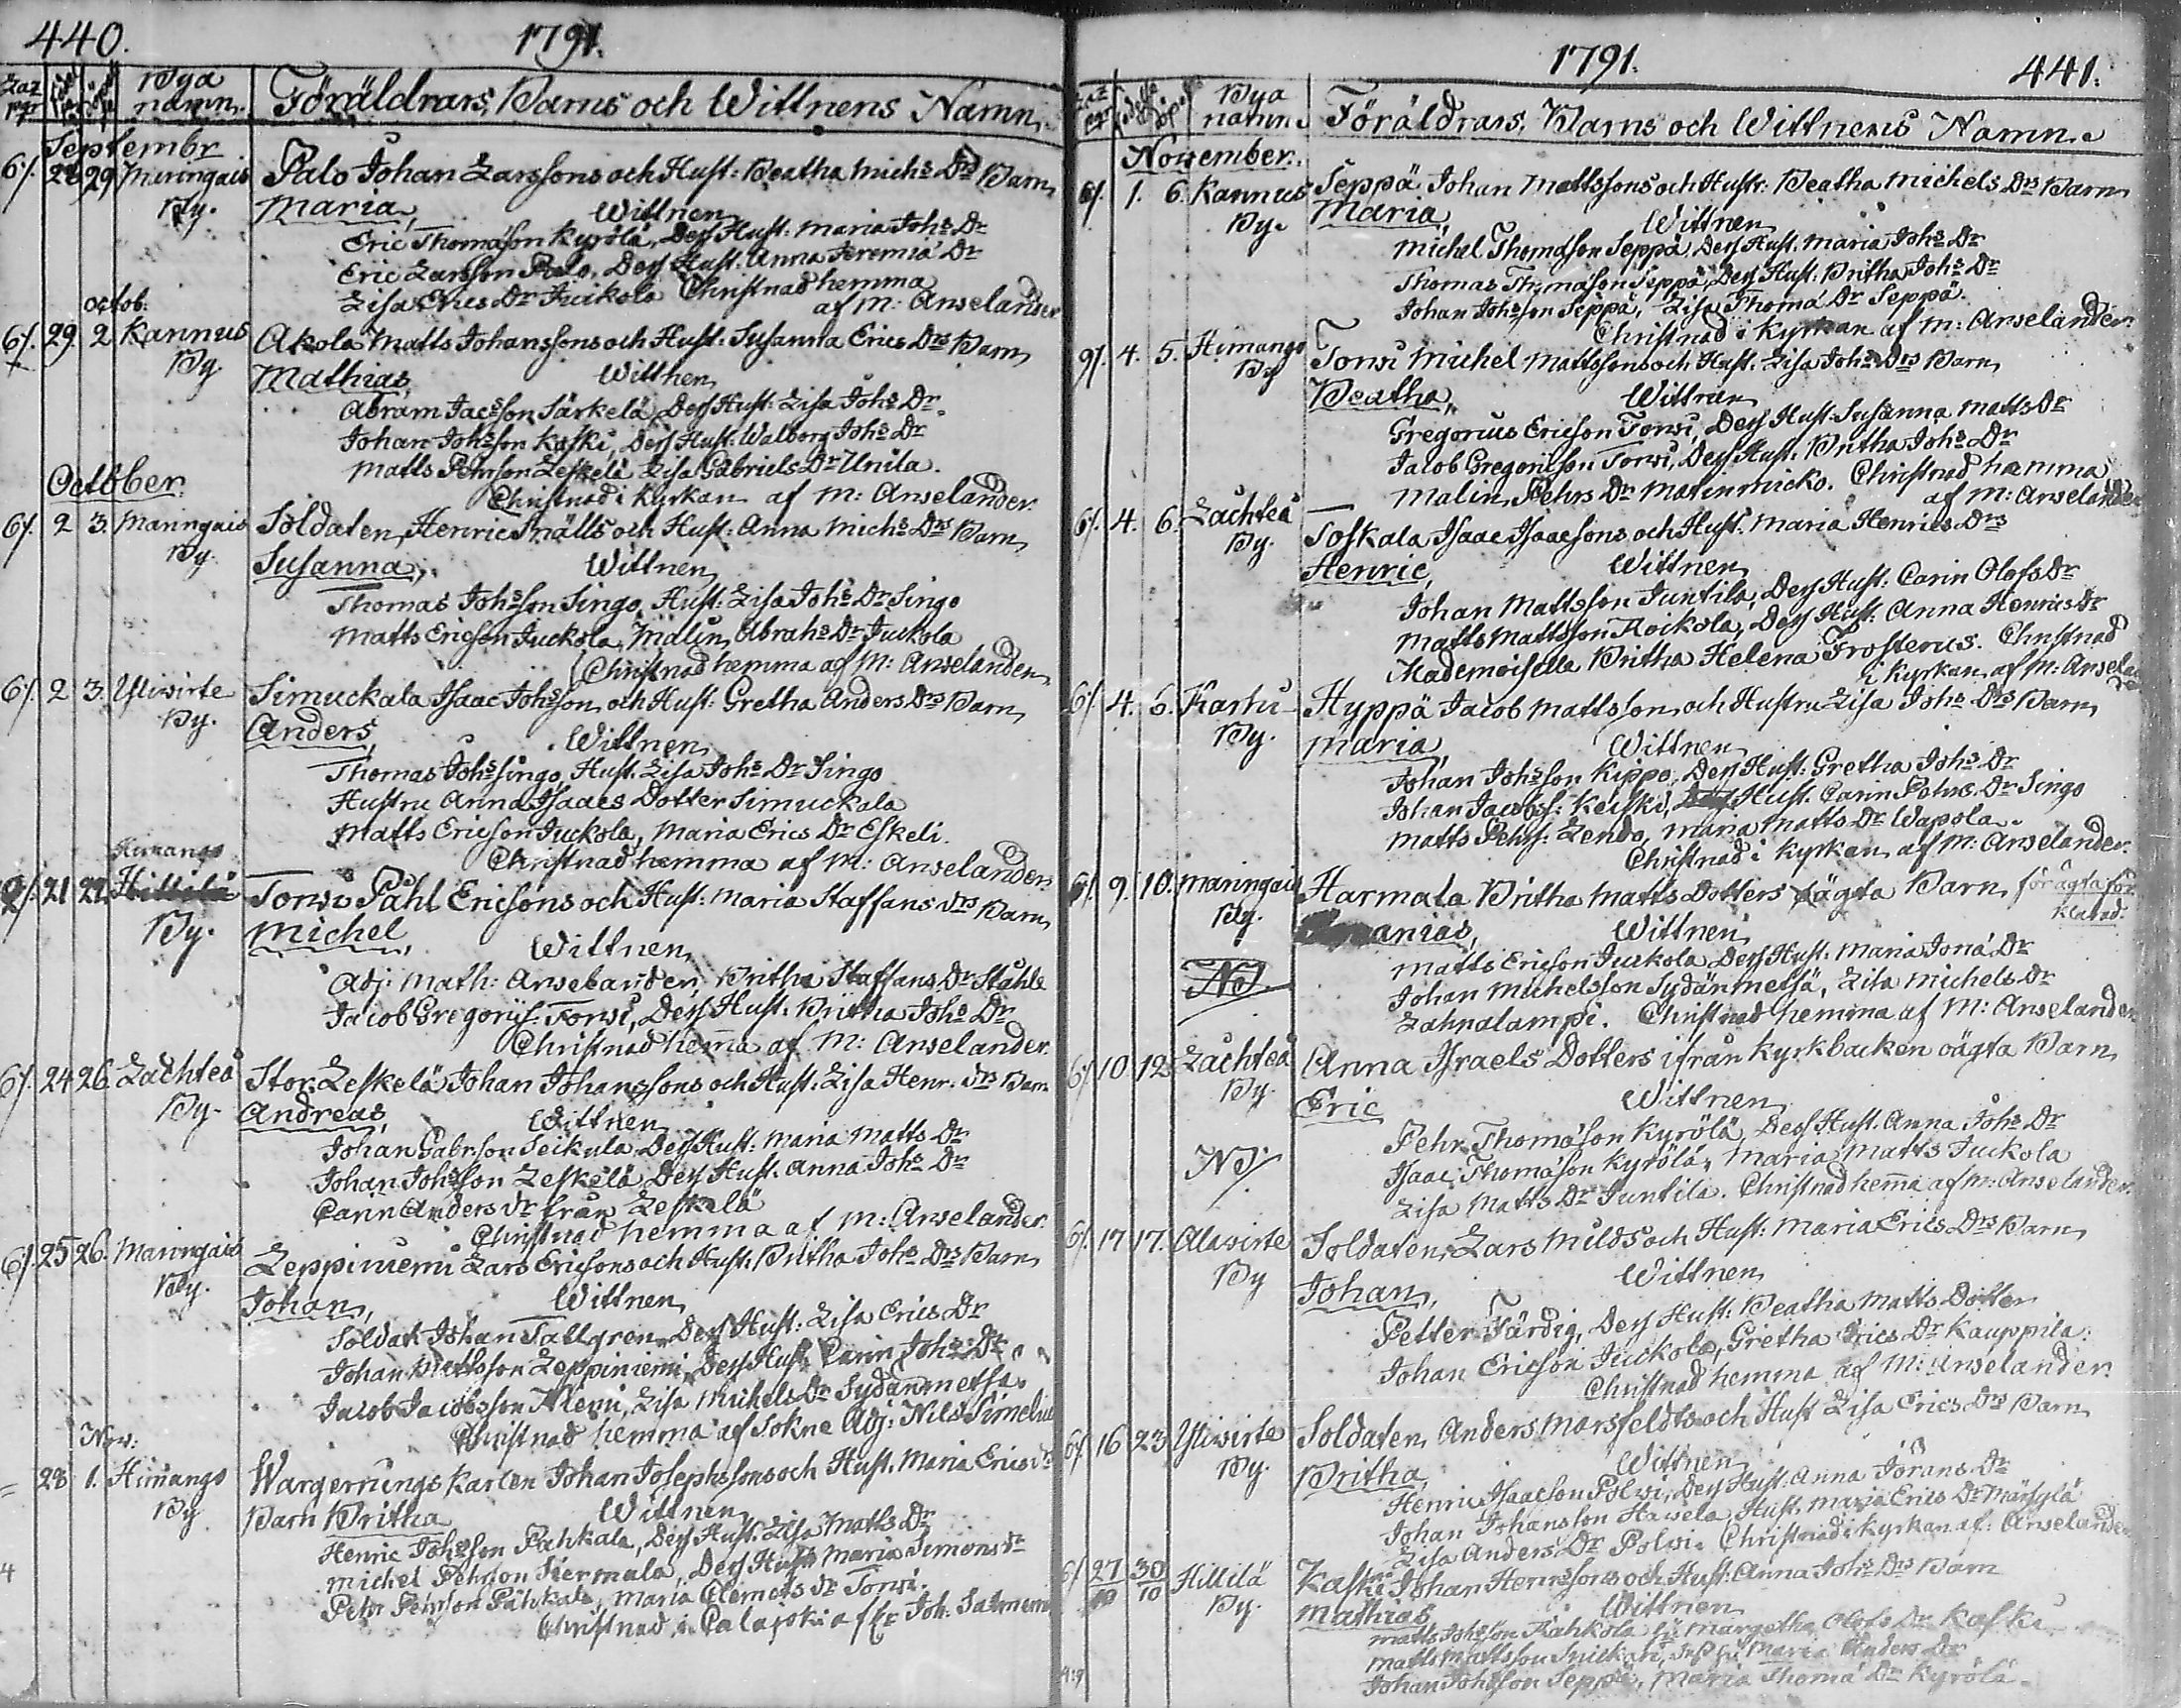 440. 1791.
Bya namn. Föräldrars, Barns och Wittnens Namn
Septembr
6/. 28 29 Maringais Palo Johan Larssons och Hust: Beatha Michs Drs Barn
By. Maria, Wittnen
Eric Thomæson Kyrölä, Dess Hust: Maria Johs Dr
Eric Larsson Palo, Dess Hust: Anna Jeremiæ Dr
Lisa Erics Dr Juckola Christnad hemma
Octob: af M: Anselander
6/. 29. 2 Kannus Akola Matts Johanssons och Hust: Susanna Erics Drs Barn
By Mathias, Wittnen
Abram Jacsson Särkelä, Dess Hust: Lisa Johs Dr.
Johan Johsson Kaski, Dess Hust: Walborg Johs Dr
Matts Pehrson Leskelä Lisa Gabriels Dr Unila.
October. Christnad i Kyrkan af M: Anselander.
6/. 2 3. Maringais Soldaten Henric Snälls och Hust: Anna Michs Drs Barn
By. Susanna, Wittnen
Thomas Johsson Singo, Hust: Lisa Johs Dr Singo
Matts Ericson Juckola, Malin Abrahs Dr Juckola
Christnad hemma af M: Anselander
6/. 2 3. Yliwirte Simuckala Isaac Johsson och Hust: Gretha Anders Drs Barn
By. Anders, Wittnen
Thomas Johs Singo, Hust. Lisa Johs Dr Singo
Hustru Anna Isaacs Dotter Simuckala
Matts Ericson Juckola, Maria Erics Dr Eskeli.
Himango Christnad hemma af M: Anselander
9/. 21 22. Hillilä Torwi Påhl Ericsons och Hust: Maria Staffans Drs Barn
By. Michel, Wittnen
Adj: Math: Anselander, Britha Staffans Dr Ståhle
Jacob Gregoriis: Torwi, Dess Hust. Britha Johs Dr
Christnad hemma af M: Anselander.
6/. 24 26. Lachteå Stor: Leskelä Johan Johanssons och Hust: Lisa Henr. Drs Barn
By. Andreas, Wittnen
Johan Gabr:son Seikula Dess Hust: Maria Matts Dr
Johan Johsson Leskelä Dess Hust: Anna Johs Dr
Carin Anders Dr från Leskelä
Christnad hemma af M: Anselander.
6/. 25 26. Maringais Leppiniemi Lars Ericsons och Hust: Britha Johs Drs Barn
By. Johan, Wittnen
Soldat Johan Tallgren, Dess Hust: Lisa Erics Dr
Johan Mattsson Leppiniemi, Dess Hust. Carin Johs Dr
Jacob Jacobsson Niemi, Lisa Michels Dr Sydänmetsä.
Nov: Christnad hemma af Sokne Adj: Nils Simelius
28 1. Himango Wargerrings Karlen Johan Josephssons och Hust. Maria Erics Dr
By Barn Britha Wittnen
Henric Johsson Pahkala, Dess Hust: Lisa Matts Dr
Michel Pehrson Hermala, Dess Hust Maria Simons Dr
Pehr Pehrson Pahkala, Maria Clemets Dr Torwi.
Christnad i Calajoki af Joh:
1791. 441.
Bya namn. Föräldrars, Barns och Wittnens Namn.
November.
6/. 1. 6. Kannus Seppä Johan Mattssons och Hustr: Beatha Michels Drs Barn
By. Maria, Wittnen
Michel Thomasson Seppä, Dess Hust. Maria Johs Dr
Thomas Thomæson Seppä, Dess Hust: Britha Johs Dr
Johan Johsson Seppä, Lisa Thomæ Dr Seppä.
Christnad i Kyrkan af M: Anselander.
9/. 4. 5. Himango Torwi Michel Mattssons och Hust. Lisa Johs Drs Barn
By Beatha, Wittnen
Gregorius Ericson Torwi, Dess Hust: Susanna Matts Dr
Jacob Gregorisson Torwi, Dess Hust. Britha Johs Dr
Malin Pehrs Dr Marinmicko. Christnad hemma
af M: Anselander
6/. 4. 6. Lachteå Toskala Isaac Isaacsons och Hust: Maria Henrics Drs
By. Henric, Wittnen
Johan Mattsson Juntila, Dess Hust: Carin Olofs Dr
Matts Mattsson Kockola, Dess Hust: Anna Henrics Dr
Mademoiselle Britha Helena Frosterus. Christnad
i Kyrkan af M: Anselander
6/. 4. 6. Karhu Hyppä Jacob Mattsson och Hustru Lisa Johs Drs Barn
By. Maria, Wittnen
Johan Johsson Kippo, Dess Hust: Gretha Johs Dr
Johan Jacobs: Keiski, Hust: Carin Pehrs Dr Singo
Matts Pehrs: Lendo, Maria Matts Dr Wapola.
Christnad i Kyrkan af M: Anselander.
6/. 9. 10. Maringais Harmala Britha Matts Dotters oägta Barn, för ägta för
By. klarad.
Wittnen
Matts Ericson Juckola Dess Hust: Maria Jonæ Dr
NB. Johan Michelsson Sydänmetsä, Lisa Michels Dr
Lahnalampi. Christnad hemma af M: Anselander
6/. 10 12 Lachteå Anna Israels Dotters ifrån Kyrkbacken oägta Barn
By. Eric Wittnen
Pehr Thomæson Kyrölä, Dess Hust. Anna Johs Dr
NB. Isaac Thomæson Kyrölä, Maria Matts Juckola
Lisa Matts Dr Juntila. Christnad hemma af M: Anselander.
6/. 17 17. Alawirte Soldaten Lars Milds och Hust: Maria Erics Drs Barn
By Johan, Wittnen
Petter Färdig, Dess Hust: Beatha Matts Dotter
Johan Ericson Juckola, Gretha Erics Dr Kauppila.
Christnad hemma af M: Anselander.
6/. 16 23 Yliwirte Soldaten Anders Marsfeldts och Hust Lisa Erics Drs Barn
By. Britha, Wittnen
Henric Isaacson Polwi, Dess Hust: Anna Jörans Dr
Johan Johansson Hawela Hust. Maria Erics Dr
Lisa Anders Dr Polwi. Christnad i Kyrkan af: Anselander
6/ 27/10 30/10 Hillilä Kaski Johan Henrssons och Hust: Anna Johs Drs Barn
By. Mathias Wittnen
Matts Johsson Kahkola Margetha Olofs Dr Kaski
Matts Mattsson Maria Anders Dr
Johan Johsson Seppä, Maria Thomæ Dr Kyrölä.